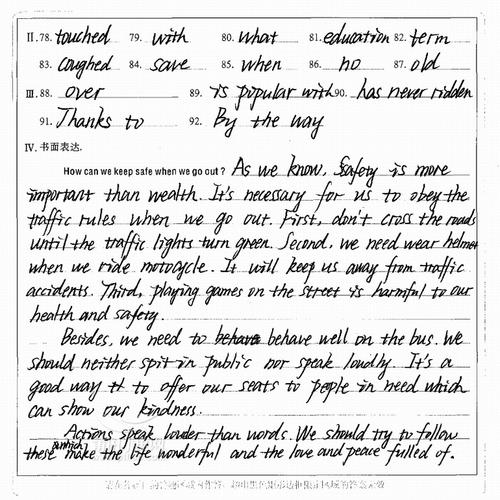 II.78. touched 79. with 80. what 81. education 82. term
83. coughed 84. save 85. when 86. no 87. old
III.88. over 89. is popular with 90. has never ridden
91. Thanks to 92. By the way
IV. 书面表达.
How can we keep safe when we go out? As we know, Safety is more
important than wealth. It's necessary for us to obey the
traffic rules when we go out. First, don't cross the roads
until the traffic lights turn green. Second, we need wear helmet
when we ride motocycle. It will keep us away from traffic
accidents. Third, playing games on the street is harmful to our
health and safety.
Besides, we need to behave behave well on the bus. We
should neither spit in public nor speak loudly. It's a
good way to offer our seats to people in need which
can show our kindness.
Actions speak louder than words. We should try to follow
these which make the life wonderful and the love and peace fulled of.